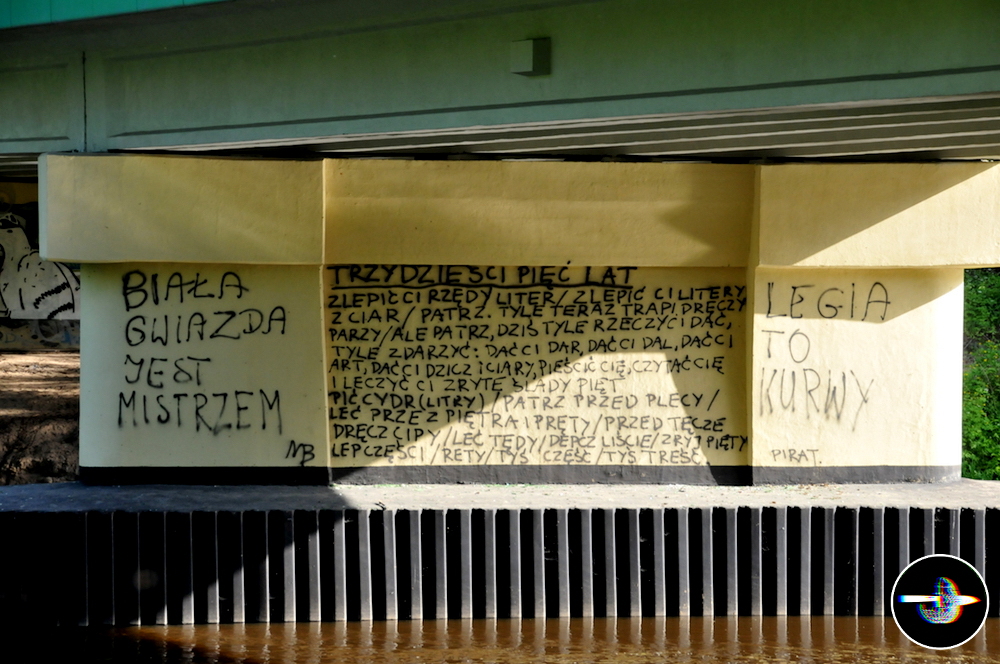 BIAŁA
GWIAZDA
JEST
MISTRZEM
MB
TRZYDZIEŚCI PIĘĆ LAT
ZLEPIĆ CI RZĘDY LITER/ZLEPIĆ CI LITERY
Z CIAR/PATRZ. TYLE TERAZ TRAPI, DRĘCZY
PARZY/ALE PATRZ, DZIŚ TYLE RZECZY CI DAĆ,
TYLE ZDARZYĆ: DAĆ CI DAR, DAĆ CI DAL, DAĆ CI
ART, DAĆ CI DZICZ I CIARY, PIEŚCIĆ CIĘ, CZYTAĆ CIĘ
I LECZYĆ CI ZRYTE ŚLADY PIĘT
PIĆ CYDR (LITRY) / PATRZ PRZED PLECY /
LEĆ PRZEZ PIĘTRA I PRĘTY / PRZED TĘCZĘ
DRĘCZ CIPY/LEĆ TĘDY/DEPCZ LIŚCIE/ZRYJ PIĘTY
LEP CZĘŚCI/RETY/TYŚ CZĘŚĆ/TYŚ TREŚĆ.
LEGIA
TO
KURWY
PIRAT.